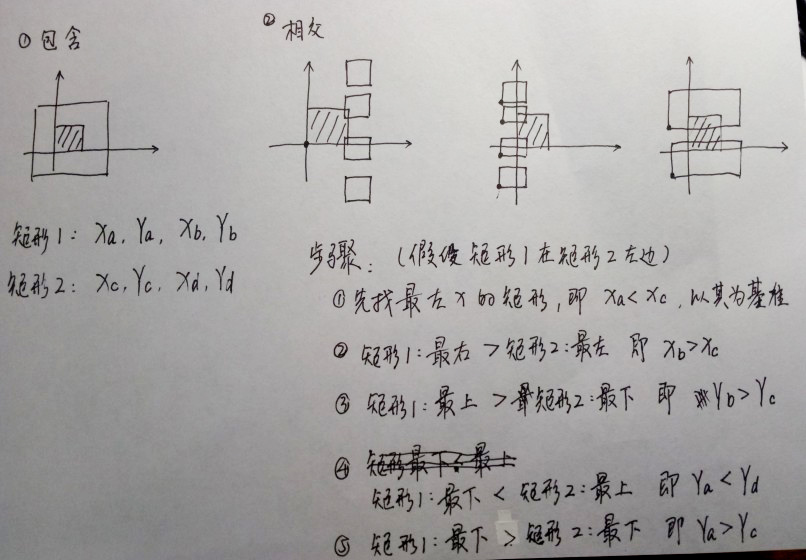 ① 包含
② 相交
矩形1: Xa, Ya, Xb, Yb
矩形2: Xc, Yc, Xd, Yd
步骤: (假使矩形1在矩形2左边)
① 先找最左x的矩形, 即 Xa < Xc, 以其为基准
② 矩形1:最右 > 矩形2:最左 即 Xb > Xc
③ 矩形1:最上 > 矩形2:最下 即 Yb > Yc
④ 矩形最下 < 最上
矩形1:最下 < 矩形2:最上 即 Ya < Yd
⑤ 矩形1:最下 > 矩形2:最下 即 Ya > Yc